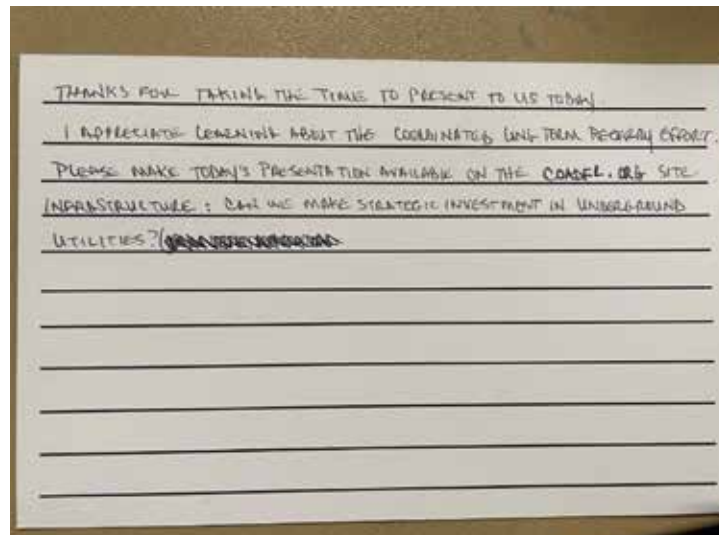 THANKS FOR TAKING THE TIME TO PRESENT TO US TODAY.
I APPRECIATE LEARNING ABOUT THE COORDINATED LONG TERM RECOVERY EFFORT.
PLEASE MAKE TODAY'S PRESENTATION AVAILABLE ON THE COADFL.ORG SITE
INFRASTRUCTURE: CAN WE MAKE STRATEGIC INVESTMENT IN UNDERGROUND
UTILITIES?